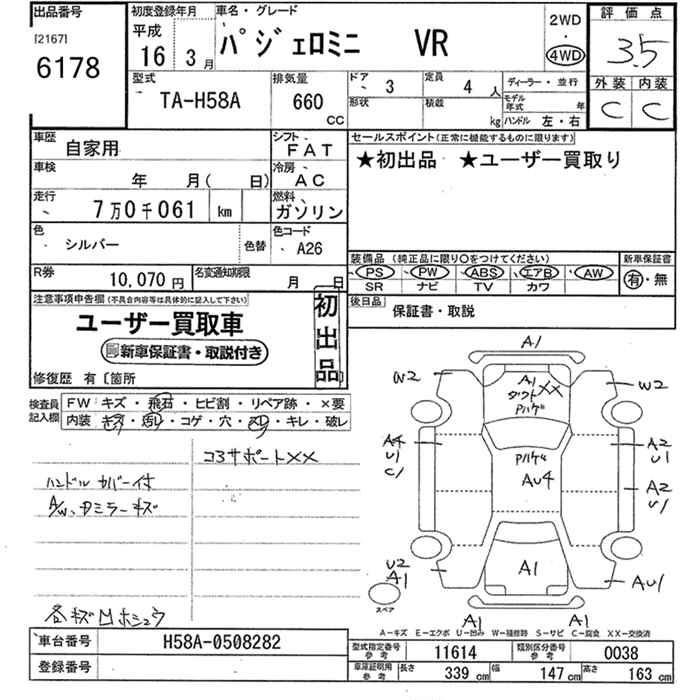 出品番号
[2167]
6178
初度登録年月
平成
16年
3月
車名・グレード
パジェロミニ VR
2WD
・
4WD
評価点
3.5
外装 内装
C C
型式
TA-H58A
排気量
660
CC
ドア
、 3
定員
4 人
形状
積載
kg
ディーラー・並行
モデル年式 年
ハンドル 左・右
車歴
自家用
シフト
FAT
車検
年 月( 日)
冷房
AC
走行
7万0千061 km
燃料
ガソリン
色
シルバー
色替
色コード
A26
R券
10,070円
名変通知期限
月 日
セールスポイント(正常に機能するものに限ります)
★初出品 ★ユーザー買取り
装備品(純正品に限り〇をつけてください)
新車保証書
PS PW ABS エアB AW
SR ナビ TV カワ
有・無
後日品
保証書・取説
注意事項申告欄(不具合内容等は具体的に記入して下さい)
ユーザー買取車
新車保証書・取説付き
初出品
修復歴 有〔箇所
検査員記入欄
FW キズ・飛石・ヒビ割・リペア跡・×要
内装 キズ・汚れ・コゲ・穴・スレ・キレ・破レ
コアサポートXX
ハンドルカバー付
A/W、ドミラーキズ
各キズ凹ホシュウ
A1
W2
A1
XX
Pハゲ
W2
A4
U1
C1
Pハゲ
AU4
A2
U1
A2
U1
U2
A1
A1
AU1
スペア
A1
A1
A-キズ E-エクボ U-凹み W-補修跡 S-サビ C-腐食 XX-交換済
車台番号
H58A-0508282
登録番号
型式指定番号 参考
11614
類別区分番号 参考
0038
車庫証明用 参考
長さ 339 cm
幅 147 cm
高さ 163 cm